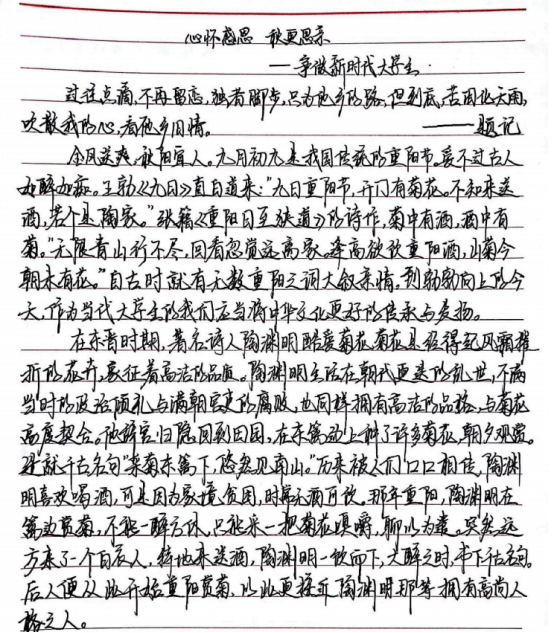 心怀感恩 敬更思亲
——争做新时代大学生
过往点滴,不再留恋,独者脚步,只为他乡的路,但到底,苦困化天雨,
吹散我的心,看他乡旧情。 ——题记
金风送爽,秋阳宜人。九月初九是我国传统的重阳节。爱不过古人
如醉如痴。王勃《九日》直白道来:“九日重阳节,开门有菊花。不知来送
酒,若个是陶家。”张籍《重阳日至峡道》的诗作,菊中有酒,酒中有
菊。“无限青山行不尽,回看忽觉远离家。逢高欲饮重阳酒,山菊今
朝未有花。”自古时就有无数重阳之词大叙亲情。到勃勃向上的今
天,作为当代大学生的我们应当将中华文化更好的传承与发扬。
在东晋时期,著名诗人陶渊明酷爱菊花,菊花是经得起风霜摧
折的花卉,象征着高洁的品质。陶渊明生活在朝代更迭的乱世,不满
当时的政治顺礼与满朝官吏的腐败,也同样拥有高洁的品格,与菊花
高度契合。他辞官归隐回到田园,在东篱边上种了许多菊花,朝夕观赏。
建就千古名句“采菊东篱下,悠然见南山。”历来被人们口口相传,陶渊
明喜欢喝酒,可是因为家境贫困,时常无酒可饮。那年重阳,陶渊明在
篱边赏菊,不能一醉方休,只能采一把菊花嚼嚼,聊以为遣。突然远
方来了一个白衣人,特地来送酒,陶渊明一饮而下,大醉之时,书下千古名句。
后人便从此开始重阳赏菊,以此更接近陶渊明那等拥有高尚人
格之人。